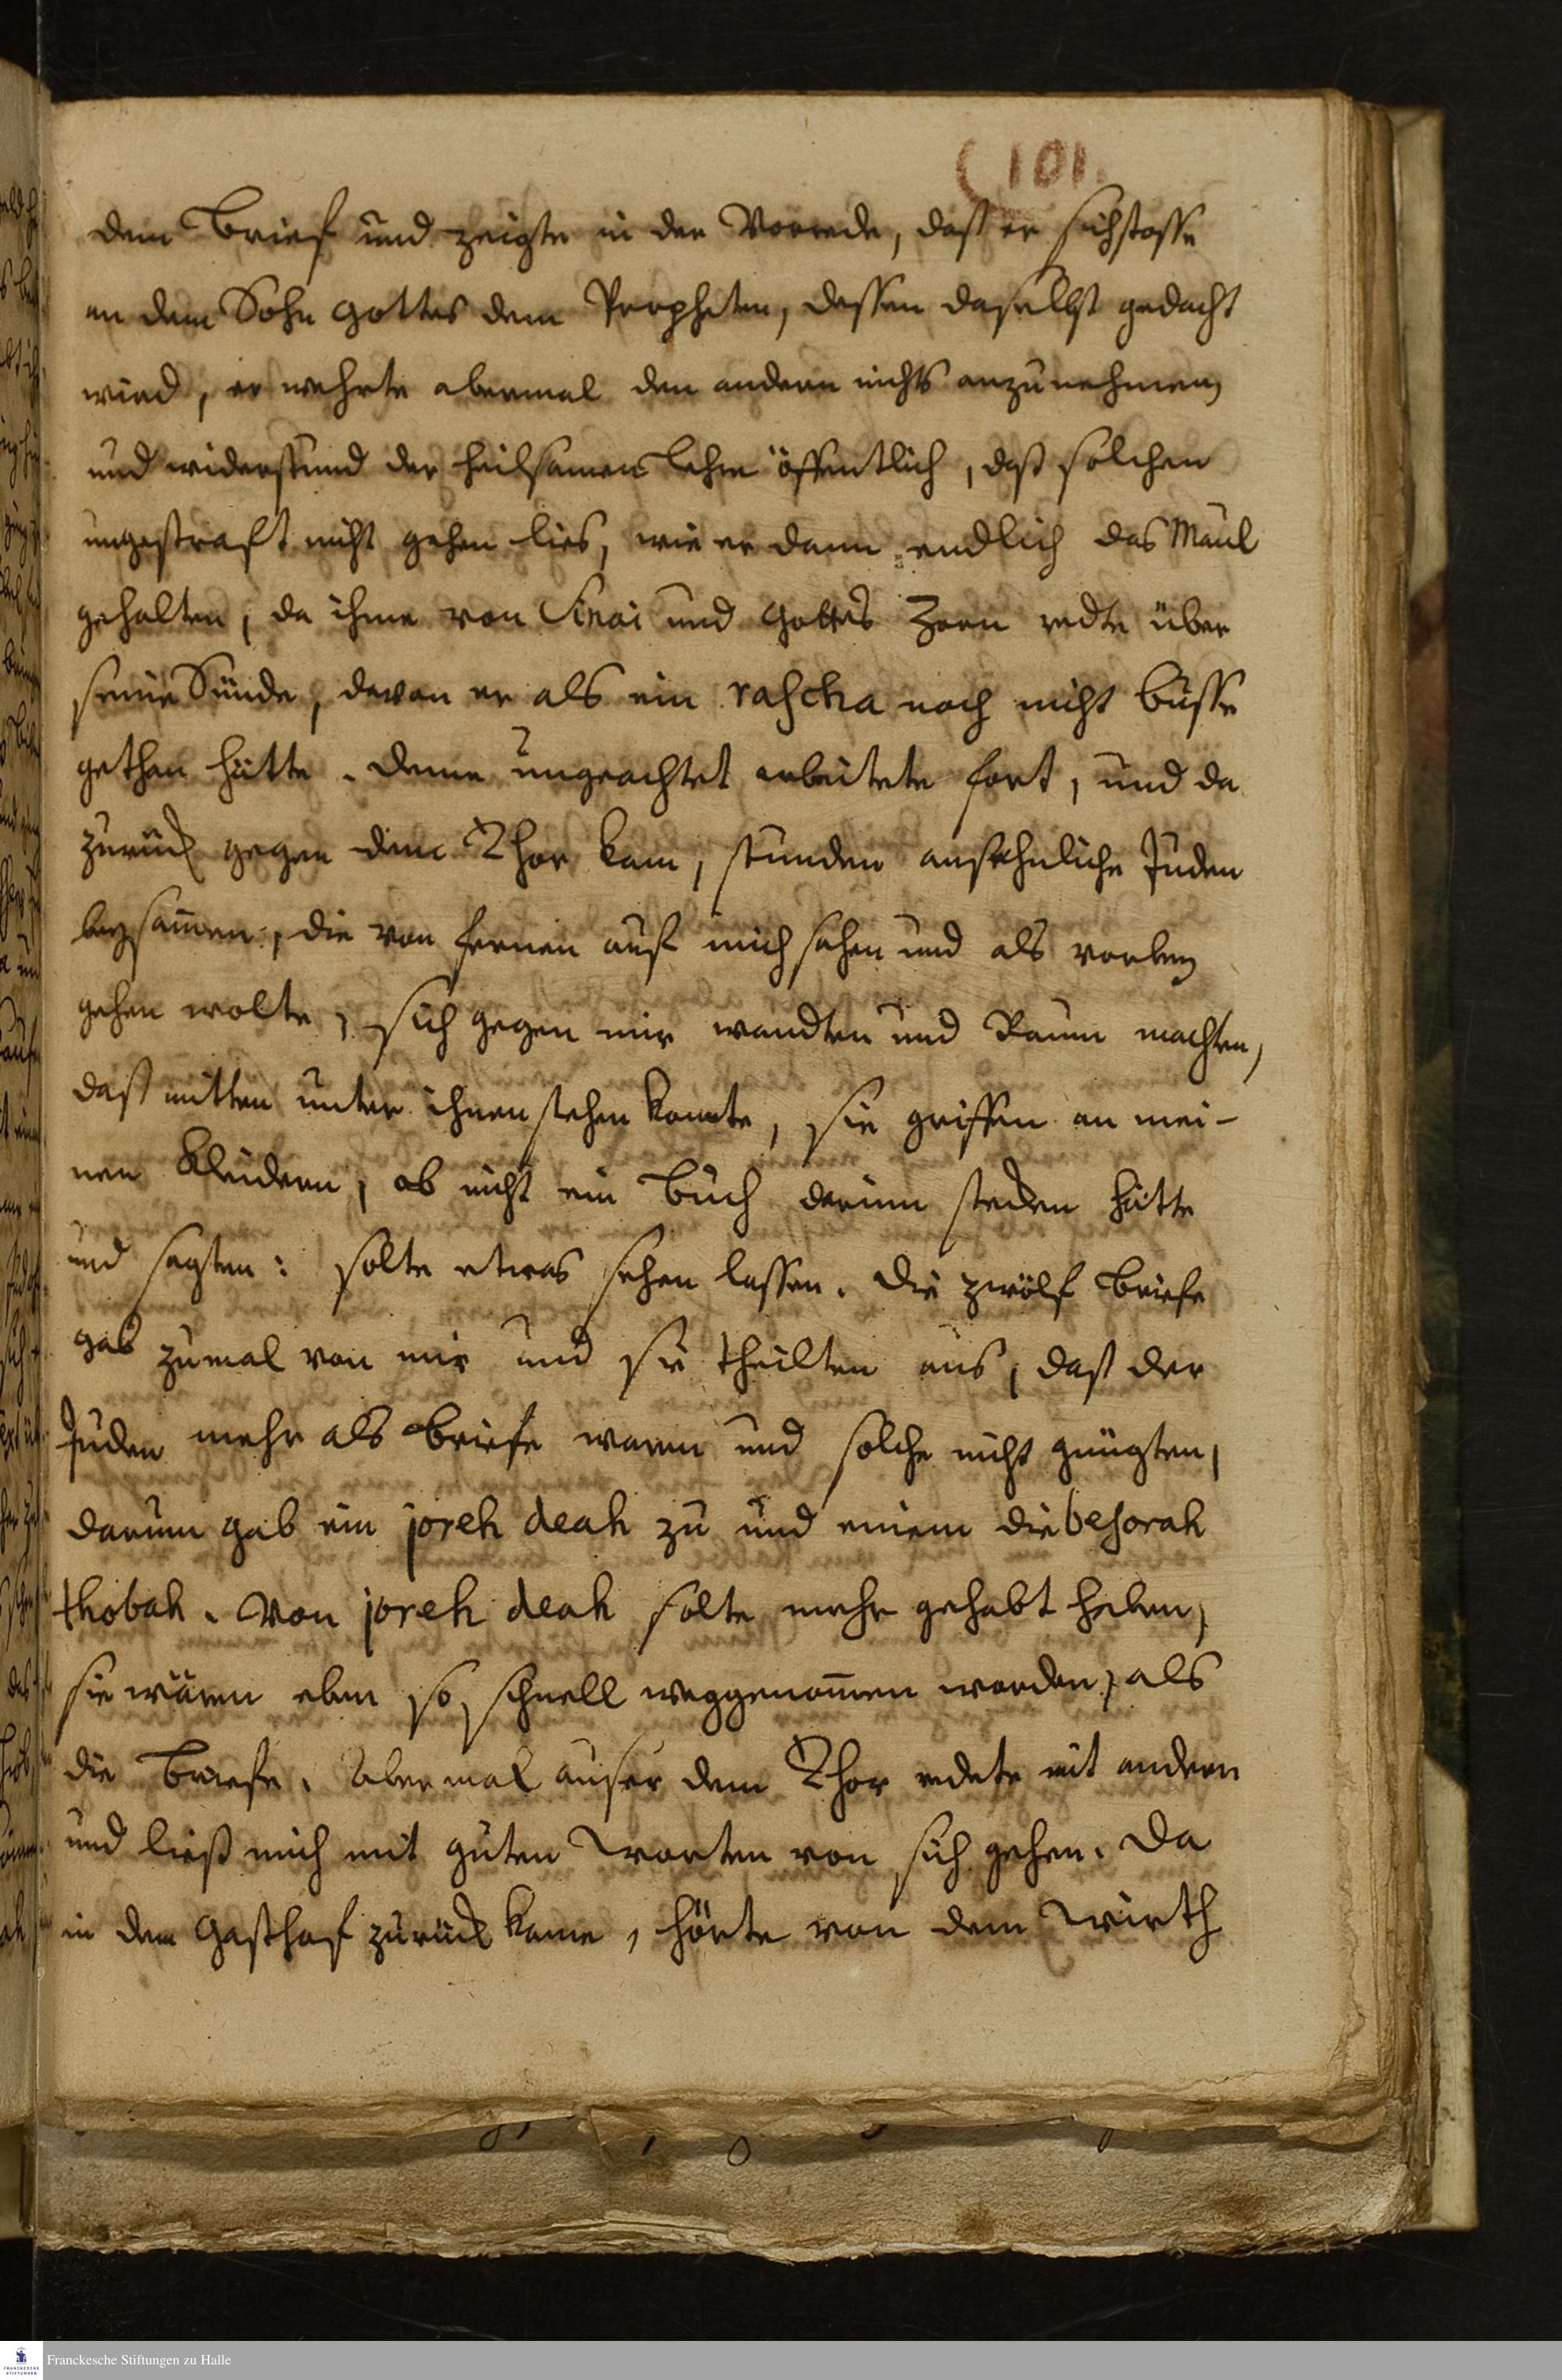 (101.
dem Brief und zeigte in der Vorrede, daß er sich stosse
an dem Sohn Gottes dem Propheten, dessen daselbst gedacht
wird, er wehrte abermal den andern nichts anzunehmen,
und widerstund der heilsamen Lehre öffentlich, daß solchen
ungestraft nicht gehen lies, wie er dann endlich das Maul
gehalten, da ihme von Sinai und Gottes Zorn redte über
seine Sünde, davon er als ein rascha noch nicht busse
gethan hätte. Deme ungeachtet arbeitete fort, und da
zurück gegen dem Thor kam, stunden ansehnliche Juden
beysam̄en, die von fernen auf mich sahen und als vorbey
gehen wolte, sich gegen mir wandten und Raum machten,
daß mitten unter ihnen stehen konnte, sie griffen an mei-
nen Kleidern, ob nicht ein Buch darinn stecken hätte
und sagten: solte etwas sehen lassen. Die zwölf briefe
gab zumal von mir und sie theilten aus, daß der
Juden mehr als briefe waren und solche nicht gnügten,
darum gab ein joreh deah zu und einem die besorah
thobah. Von joreh deah solte mehr gehabt haben,
sie wären eben so schnell weggenom̄en worden, als
die Briefe. Abermal auser dem Thor redete mit andern
und ließ mich mit guten Worten von sich gehen. Da
in dem Gasthof zurück kame, hörte von dem Wirth
Franckesche Stiftungen zu Halle